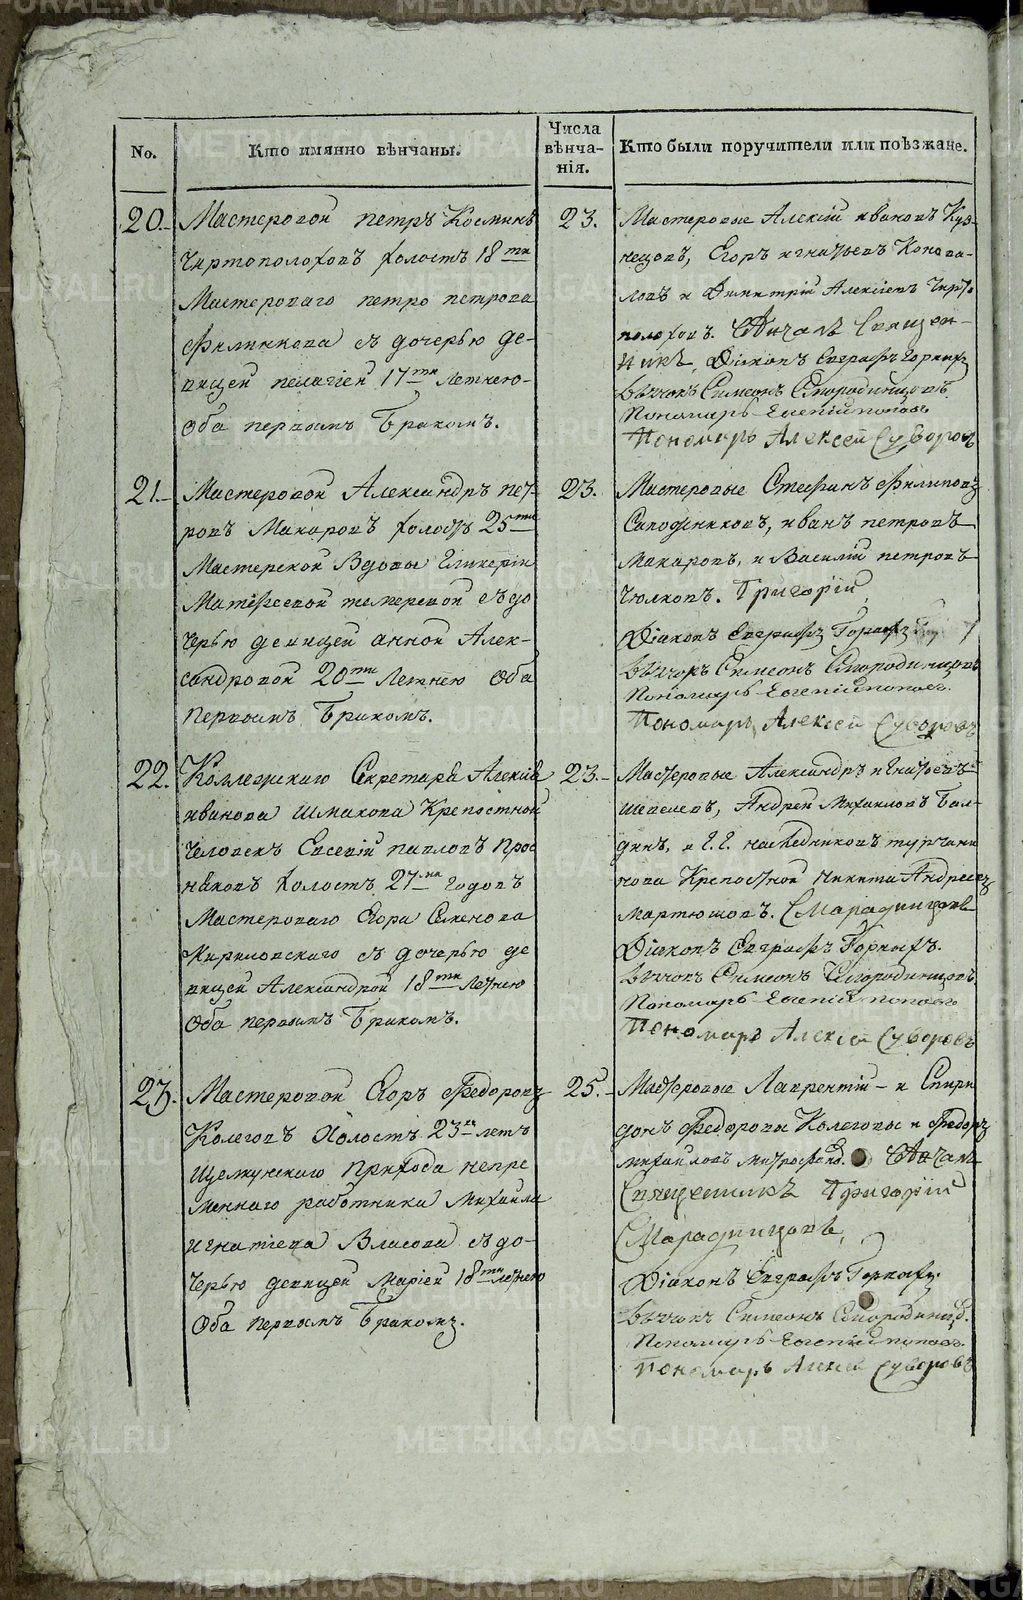 No.
Кто имянно вѣнчаны.
Числа
вѣнча-
нія.
Кто были поручители или поѣзжане.
20.
Мастеровой петръ Косминъ
Чиртополоховъ холостъ 18ти
Мастероваго петра петрова
Филинкова съ дочерью де-
вицей пелагіей 17ти Летнею
Оба первымъ Бракомъ.
23.
Мастеровые Алексій ивановъ Куз-
нецовъ, Егоръ игнатьевъ Конова-
ловъ и Димитрій Алексіевъ Чирто
полоховъ. Вѣнчалъ Священ-
никъ, Діаконъ Евграфъ Горныхъ
Дьячокъ Симеонъ Смородинцовъ
Пономарь Евгеній поповъ
Пономарь Алексей Суворовъ
21.
Мастеровой Александръ пет-
ровъ Макаровъ холостъ 25ти
Мастерской Вдовы Гликеріи
Матфеевой съ до
черью девицей анной Алек-
сандровой 20ти Летнею Оба
Первымъ Бракомъ.
23.
Мастеровые Стефанъ Филиповъ
Сапожниковъ, иванъ петровъ
Макаровъ, и Василій петровъ
Чюлковъ. Григорій
Діаконъ Евграфъ Горныхъ
Дьячокъ Симеонъ Смородинцовъ
Пономарь Евгеній поповъ.
Пономарь Алексей Суворовъ
22.
Коллежскаго Секретаря Алексія
иванова Шмакова Крепостной
человекъ Евсевій павловъ Прос
няковъ холостъ 27ми годовъ
Мастероваго Егора Семенова
Кириловскаго съ дочерью де
вицей Александрой 18ти Летнею
Оба первымъ Бракомъ.
23.
Мастеровые Александръ игнатьевъ
Шепелевъ, Андрей Михаиловъ Бал-
динъ, и Г.Г. наследниковъ турчани
нова Крепостной никита Андреевъ
мартюшовъ. Смарадинцовъ
Діаконъ Евграфъ Горныхъ.
Дьячокъ Симеонъ Смородинцовъ
Пономарь Евгеній поповъ
Пономарь Алексей Суворовъ
23.
Мастеровой Егоръ Федоровъ
Колеговъ Холостъ 23хъ летъ
Щелкунскаго Прихода непре
меннаго работника Михайла
игнатіева Власова съ до-
черью девицей Маріей 18ти летнею
Оба первымъ Бракомъ.
25.
Мастеровые Лаврентій и Спири
донъ Федоровы Колеговы и Федоръ
михаиловъ Вѣнчалъ
Священникъ Григорій
Смарадинцовъ,
Діаконъ Евграфъ Горныхъ.
Дьячокъ Симеонъ Смородинцов.
Пономарь Евгеній поповъ.
Пономарь Алексей Суворовъ
METRIKI.GASO-URAL.RU